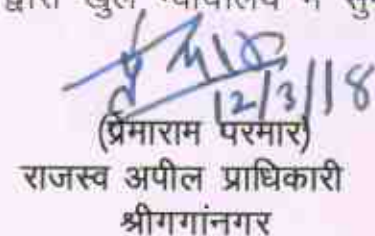 द्वारा खुले न्यायालय में
12/3/18
(प्रेमाराम परमार)
राजस्व अपील प्राधिकारी
श्रीगगांनगर